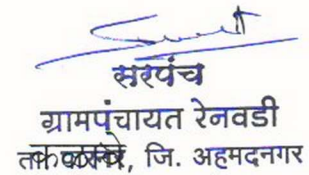 सरपंच
ग्रामपंचायत रेनवडी
जि. अहमदनगर